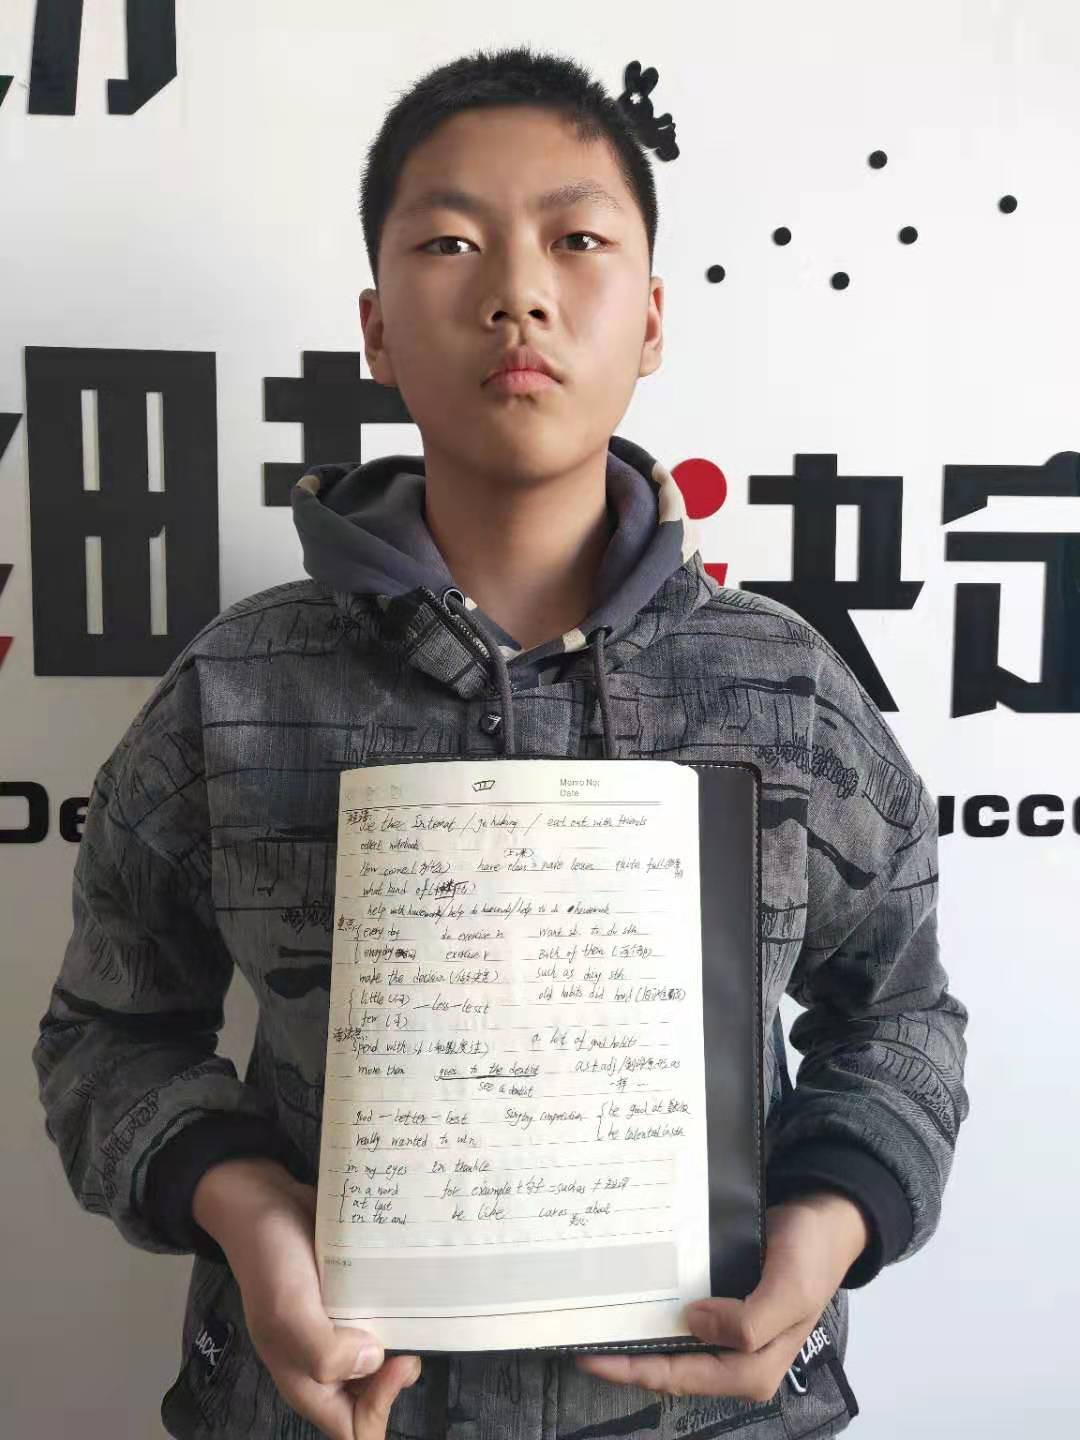 细节决定
De
ucce
Memo No:
Date
短语:
use the Internet / go hiking / eat out with friends
collect notebook
How come (为什么) have class = have lessons quite full
(上课)
what kind of
help with housework / help do housework / help to do housework
重点:
every day do exercise n want sb. to do sth
everyday exercise v Both of them
make the decision (做决定) such as doing sth
little (不) – less – lesst old habits did hard
few (不)
语法点:
spend with sb a lot of good habits
more than goes to the dentist as + adj / 副词原形 as
see a dentist 一样
good – better – best singing competition be good at
really wanted to win be talented in sth
in my eyes
in a word for example + 句子 = such as + 短语
at last
in the end be like cares about
关心
LACK
LABE